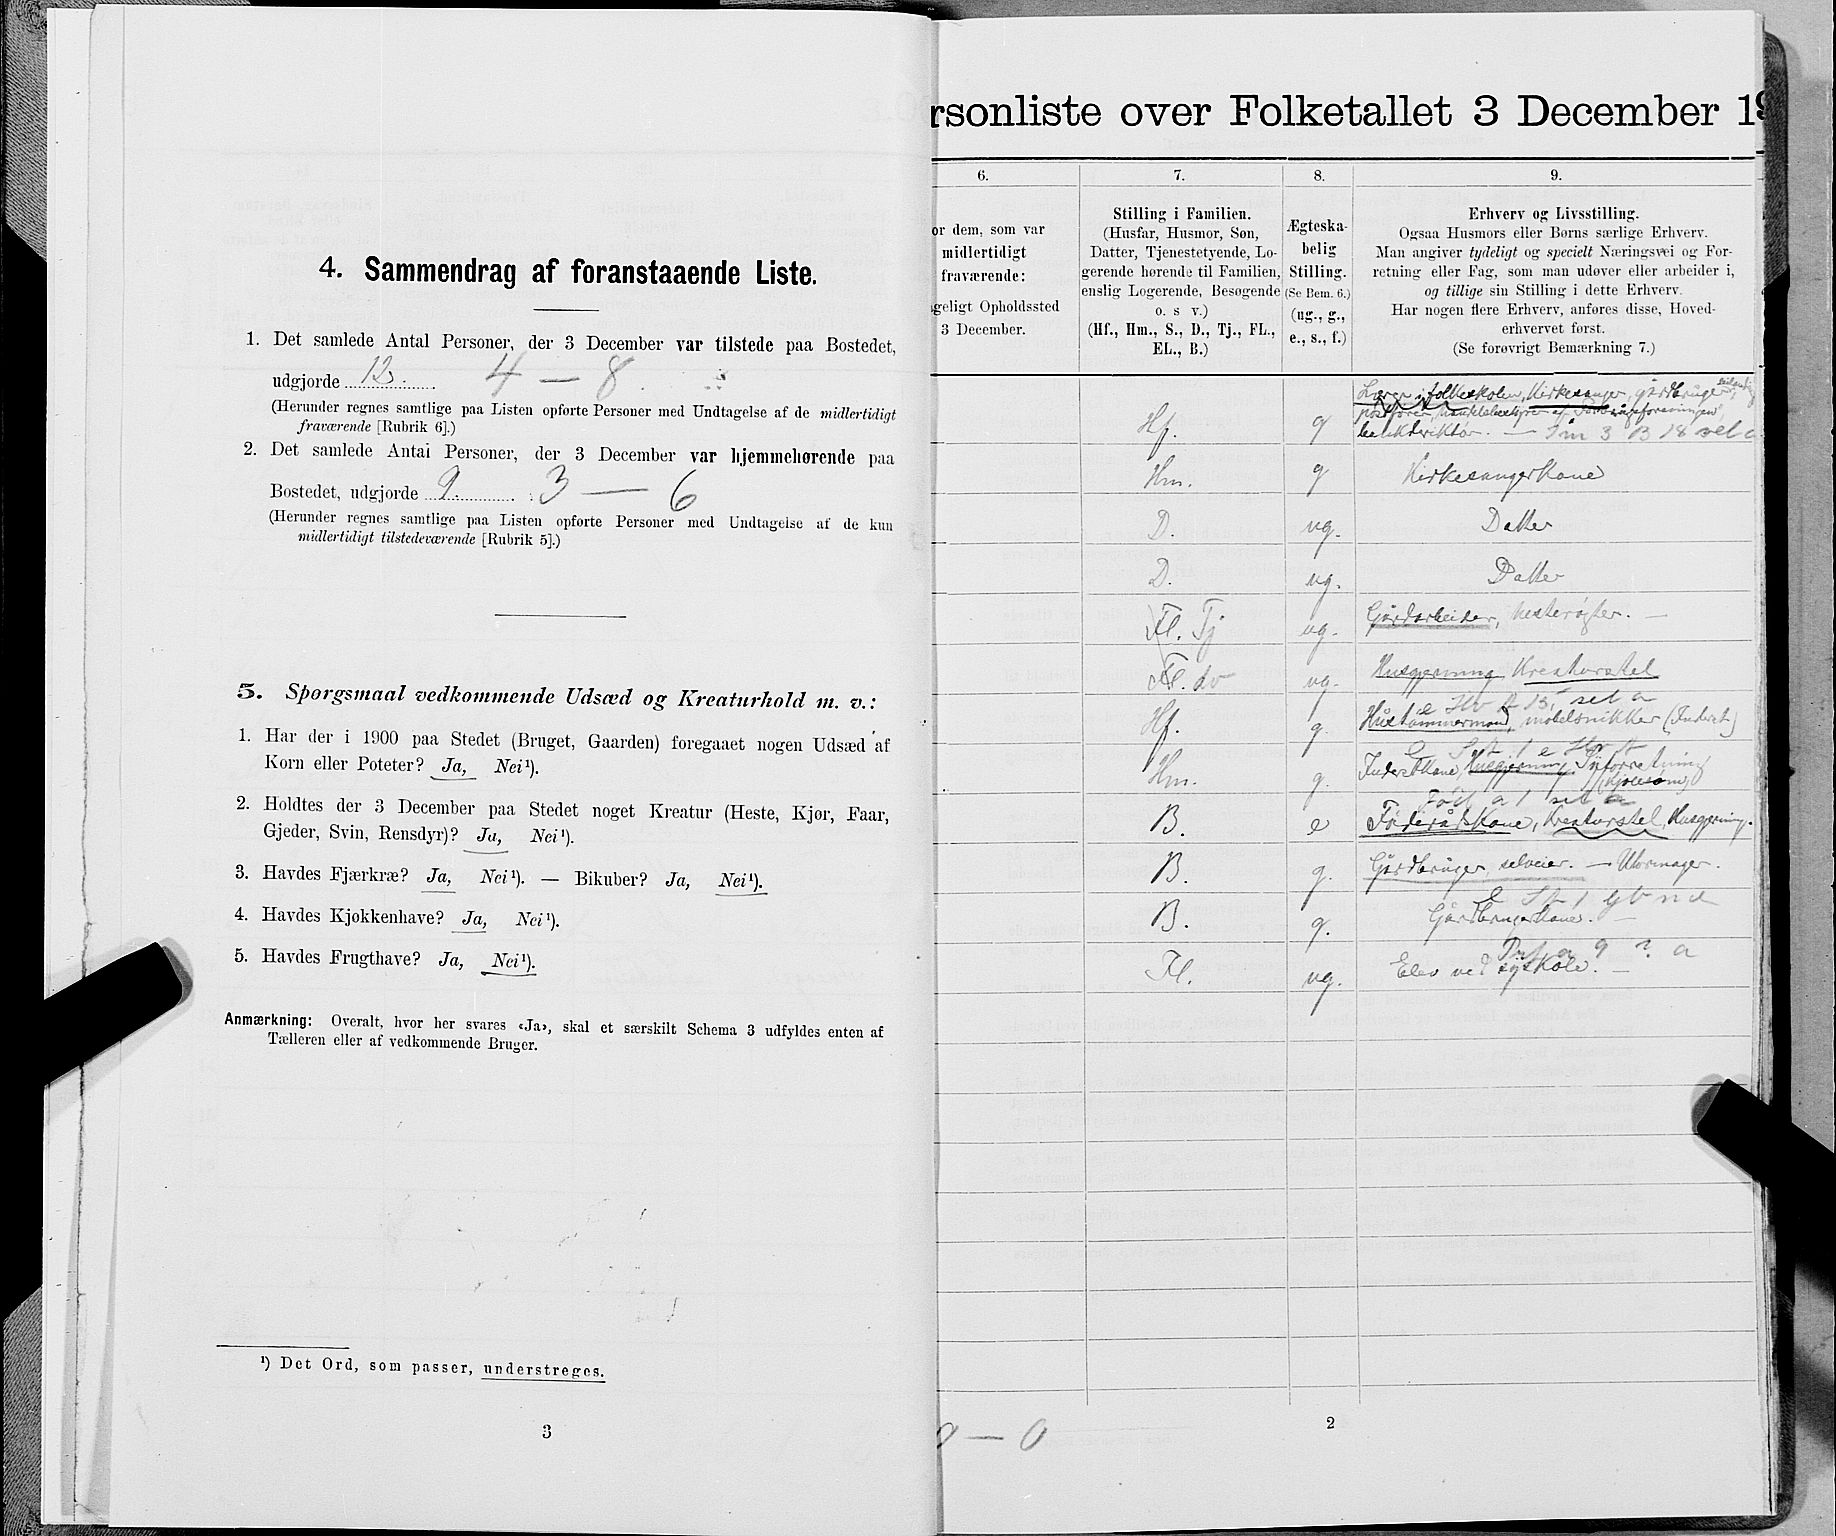 4. Sammendrag af foranstaaende Liste.
1. Det samlede Antal Personer, der 3 December var tilstede paa Bostedet,
udgjorde 12. 4 — 8.
(Herunder regnes samtlige paa Listen opførte Personer med Undtagelse af de midlertidigt
fraværende [Rubrik 6].)
2. Det samlede Antal Personer, der 3 December var hjemmehørende paa
Bostedet, udgjorde 9. 3 — 6
(Herunder regnes samtlige paa Listen opførte Personer med Undtagelse af de kun
midlertidigt tilstedeværende [Rubrik 5].)
5. Spørgsmaal vedkommende Udsæd og Kreaturhold m. v.:
1. Har der i 1900 paa Stedet (Bruget, Gaarden) foregaaet nogen Udsæd af
Korn eller Poteter? Ja, Nei¹).
2. Holdtes der 3 December paa Stedet noget Kreatur (Heste, Kjør, Faar,
Gjeder, Svin, Rensdyr)? Ja, Nei¹).
3. Havdes Fjærkræ? Ja, Nei¹). — Bikuber? Ja, Nei¹).
4. Havdes Kjøkkenhave? Ja, Nei¹).
5. Havdes Frugthave? Ja, Nei¹).
Anmærkning: Overalt, hvor her svares «Ja», skal et særskilt Schema 3 udfyldes enten af
Tælleren eller af vedkommende Bruger.
¹) Det Ord, som passer, understreges.
3
rsonliste over Folketallet 3 December 19
6. 7. 8. 9.
or dem, som var
midlertidigt
fraværende:
geligt Opholdssted
3 December.
Stilling i Familien.
(Husfar, Husmor, Søn,
Datter, Tjenestetyende, Lo-
gerende hørende til Familien,
enslig Logerende, Besøgende
o. s v.)
(Hf., Hm., S., D., Tj., FL.,
EL., B.)
Ægteska-
belig
Stilling.
(Se Bem. 6.)
(ug., g.,
e., s., f.)
Erhverv og Livsstilling.
Ogsaa Husmors eller Børns særlige Erhverv.
Man angiver tydeligt og specielt Næringsvei og For-
retning eller Fag, som man udøver eller arbeider i,
og tillige sin Stilling i dette Erhverv.
Har nogen flere Erhverv, anføres disse, Hoved-
erhvervet først.
(Se forøvrigt Bemærkning 7.)
Lærer i folkeskolen, Kirkesanger, gårdbruger,
Hf. g
Hm. g Kirkesangerkone
D. ug. Datter
D. ug. Datter
Fl. Tj ug. Gårdarbeider, hesterøgter. —
Fl. do ug. Husgjerning Kreaturstel
Hf. g. Hustømmermand, møbelsnikker (Inderst)
Hm. g. Inderstkone, Husgjerning,
B. e Føderådskone, Kreaturstel, Husgjerning.
B. g. Gårdbruger, selveier. — Uhrmager.
B. g. Gårdbrugerkone. —
Fl. ug. Elev ved syskole. —
— 0
2